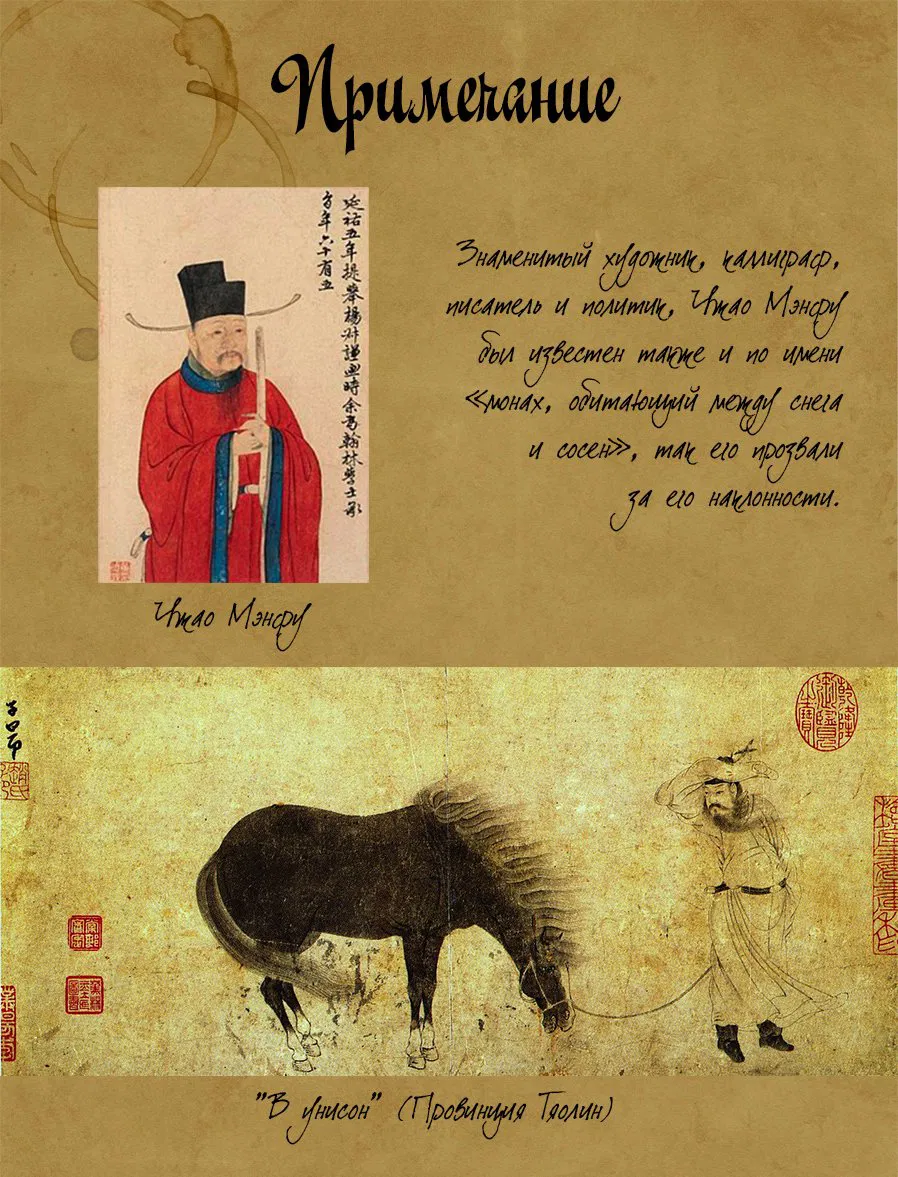 Примечание
延祐五年提舉楊叔謹畫時余為翰林學士承
旨年六十有五
Знаменитый художник, каллиграф,
писатель и политик, Чжао Мэнфу
был известен также и по имени
«монах, обитающий между снега
и сосен», так его прозвали
за его наклонности.
Чжао Мэнфу
子昂
乾隆御覽之寶
"В унисон" (Провинция Тяолин)